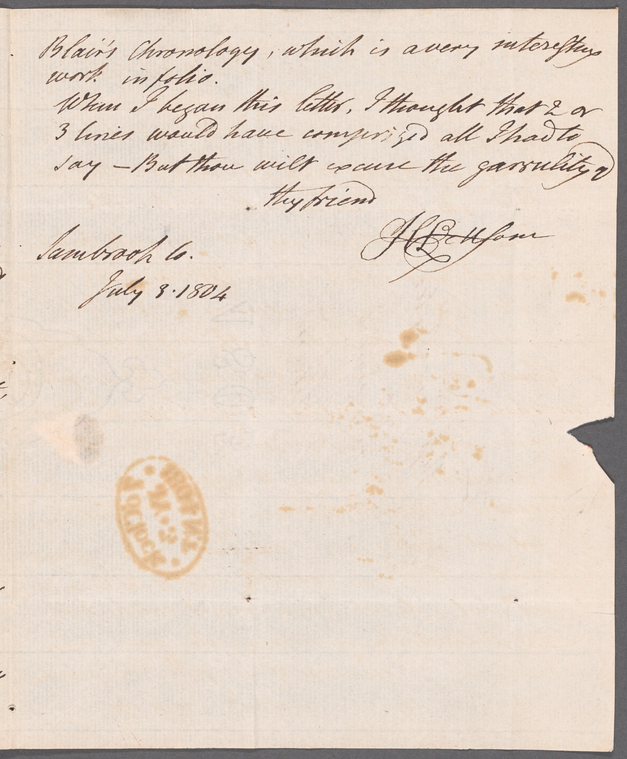 Blair's Chronology, which is a very interesting
work in folio.
When I began this letter, I thought that 2 or
3 lines would have comprized all I had to
say – But thou wilt excuse the garrulity of
thy friend
Sambrook Ct.
July 3. 1804
o'Clock